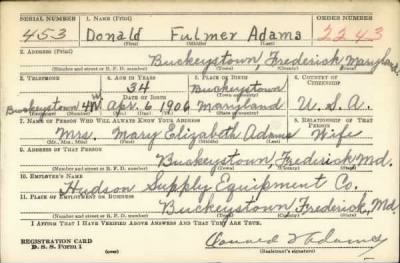 SERIAL NUMBER 1. NAME (Print) ORDER NUMBER
453 Donald Fulmer Adams 2243
(First) (Middle) (Last)
2. ADDRESS (Print)
Buckeystown, Frederick Maryland
(Number and street or R. F. D. number) (Town) (County) (State)
3. TELEPHONE 4. AGE IN YEARS 5. PLACE OF BIRTH 6. COUNTRY OF CITIZENSHIP
34 Buckeystown
DATE OF BIRTH (Town or county)
Buckeystown 4W Apr. 6 1906 Maryland U.S.A.
(Exchange) (Number) (Mo.) (Day) (Yr.) (State or country)
7. NAME OF PERSON WHO WILL ALWAYS KNOW YOUR ADDRESS 8. RELATIONSHIP OF THAT PERSON
Mrs. Mary Elizabeth Adams Wife
(Mr., Mrs., Miss) (First) (Middle) (Last)
9. ADDRESS OF THAT PERSON
Buckeystown, Frederick Md.
(Number and street or R. F. D. number) (Town) (County) (State)
10. EMPLOYER'S NAME
Hudson Supply Equipment Co.
11. PLACE OF EMPLOYMENT OR BUSINESS
Buckeystown Frederick, Md.
(Number and street or R. F. D. number) (Town) (County) (State)
I AFFIRM THAT I HAVE VERIFIED ABOVE ANSWERS AND THAT THEY ARE TRUE.
REGISTRATION CARD
D. S. S. Form 1 (over) (Registrant's signature)